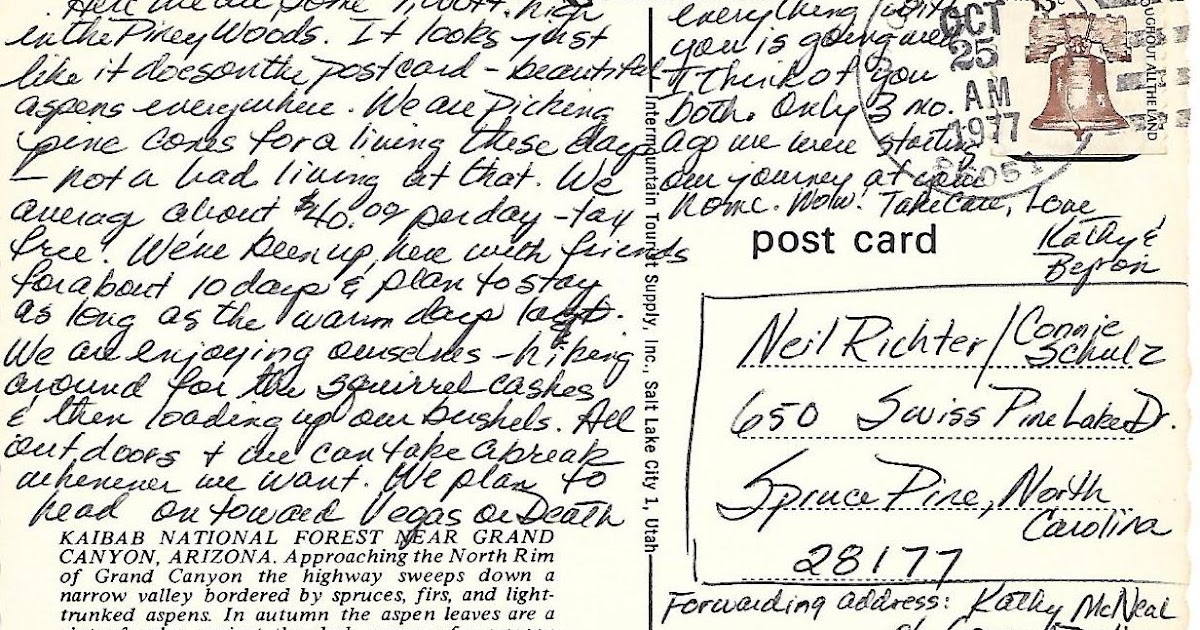 Here we are, some 9,000 ft. high
in the Piney Woods. It looks just
like it does on the postcard - beautiful
aspens everywhere. We are picking
pine cones for a living these days
- not a bad living at that. We
average about $40.00 per day - tax
free. We've been up here with friends
for about 10 days & plan to stay
as long as the warm days last.
We are enjoying ourselves - hiking
around for the squirrel cashes
& then loading up our bushels. All
outdoors & we can take a break
whenever we want. We plan to
head on toward Vegas or Death
KAIBAB NATIONAL FOREST NEAR GRAND
CANYON, ARIZONA. Approaching the North Rim
of Grand Canyon the highway sweeps down a
narrow valley bordered by spruces, firs, and light-
trunked aspens. In autumn the aspen leaves are a
Intermountain Tourist Supply, Inc., Salt Lake City 1, Utah
everything with
you is going well.
I think of you
both. Only 3 mo.
ago we were starting
our journey at your
home. Wow! Take Care, Love
Kathy &
Byron
OCT
25
AM
1977
13c
OUGHOUT ALL THE LAND
post card
Neil Richter/Connie
Schulz
650 Swiss Pine Lake Dr.
Spruce Pine, North
Carolina
28177
Forwarding address: Kathy McNeal